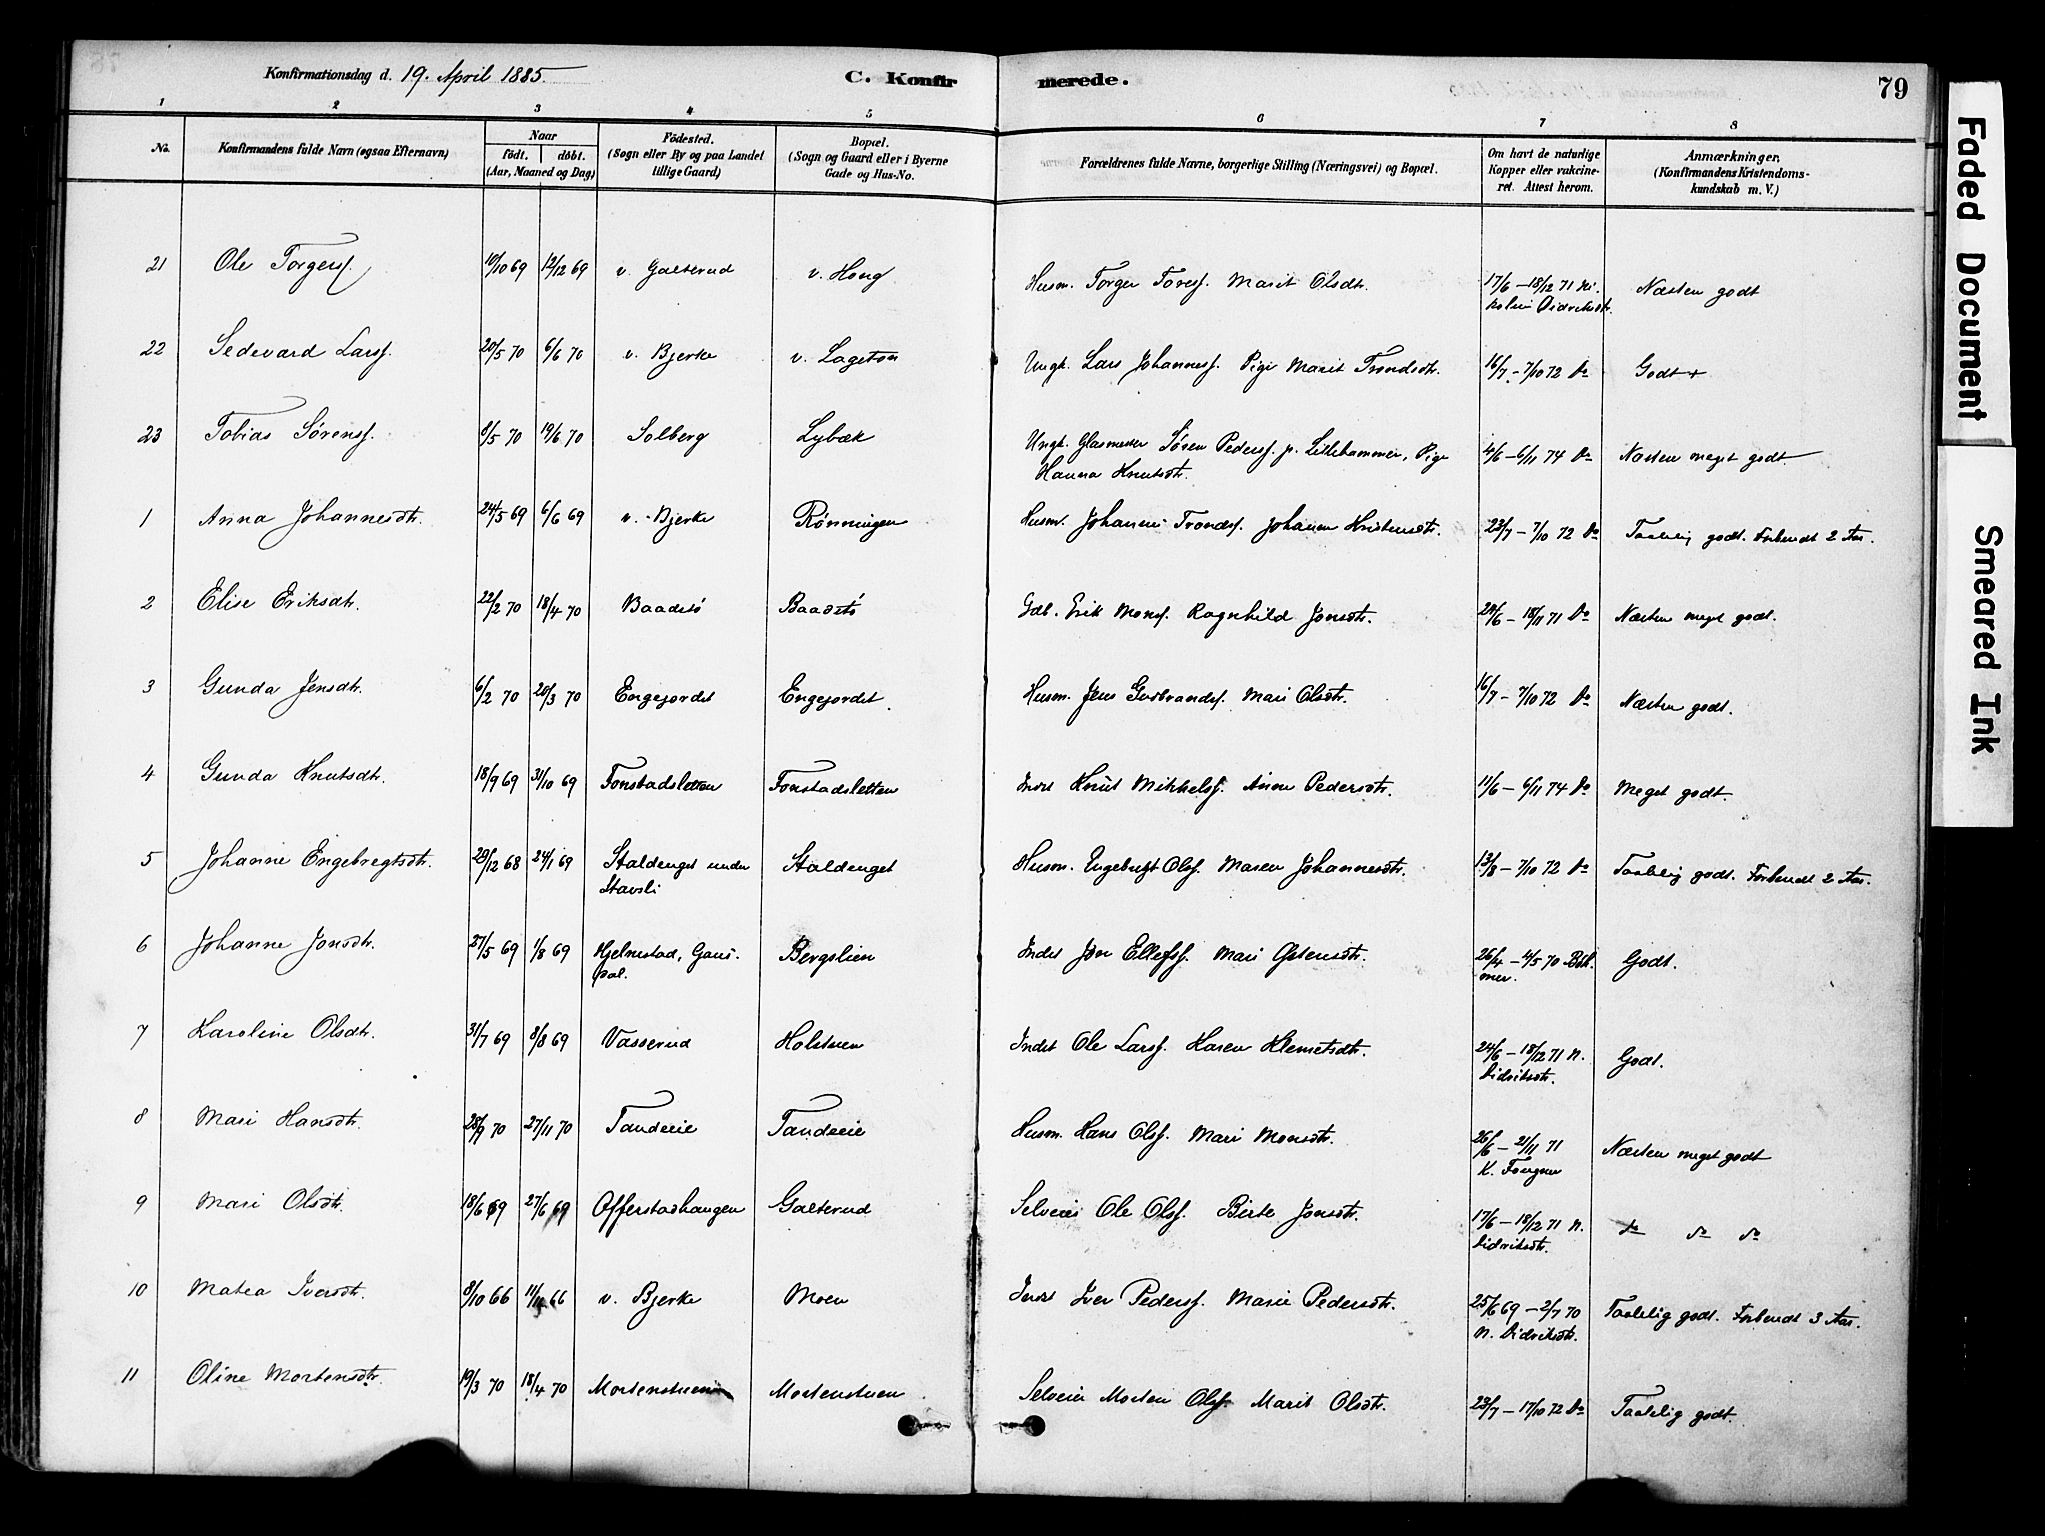 Konfirmationsdag d. 19. April 1885. C. Konfirmerede. 79
1 2 3 4 5 6 7 8
No. Konfirmandens fulde Navn (ogsaa Efternavn) Naar födt. döbt. (Aar, Maaned og Dag) Födested. (Sogn eller By og paa Landet tillige Gaard) Bopæl. (Sogn og Gaard eller i Byerne Gade og Hus-No. Forældrenes fulde Navne, borgerlige Stilling (Næringsvei) og Bopæl. Om havt de naturlige Kopper eller vakcineret. Attest herom. Anmærkninger. (Konfirmandens Kristendomskundskab m. V.)
21 Ole Torgersf. 10/10 69 12/12 69 v. Galterud v. Houg Husm. Torger Toresf. Marit Olsdtr. 17/6 – 18/12 71 Ni-
kolin Didriksdtr. Næsten godt
22 Sedevard Larsf. 20/5 70 6/6 70 v. Bjerke v. Lageton Ungk. Lars Johannesf. Pige Marit Trondsdtr. 16/7 – 7/10 72 Do Godt +
23 Tobias Sørensf. 8/5 70 19/6 70 Solberg Lybæk Ungk. Glasmester Søren Pedersf. p. Lillehammer, Pige
Hanna Knutsdtr. 4/6 – 6/11 74 Do Næsten meget godt
1 Anna Johannesdtr. 24/5 69 6/6 69 v. Bjerke Rønningen Husm. Johannes Trondsf. Johanne Kristensdtr. 23/7 – 7/10 72 Do Taalelig godt. Forberedt 2 Aar.
2 Elise Eriksdtr. 22/2 70 18/4 70 Baadstø Baadstø Gdb. Erik Monsf. Ragnhild Jonsdtr. 24/6 – 18/11 71 Do Næsten meget godt.
3 Gunda Jensdtr. 6/2 70 20/3 70 Engejordet Engejordet. Husm. Jens Gudbrandsf. Mari Olsdtr. 16/7 – 7/10 72 Do Næsten godt.
4 Gunda Knutsdtr. 18/9 69 31/10 69 Fonstadsletten Fonstadsletten Indst Knut Mikkelsf. Anne Pedersdtr. 11/6 – 6/11 74 Do Meget godt.
5 Johanne Engebregtsdtr. 29/12 68 24/1 69 Staldenget under
Stavsli Staldenget Husm. Engebregt Olsf. Maren Johannesdtr. 13/8 – 7/10 72 Do Taalelig godt. Forberedt 2 Aar.
6 Johanne Jonsdtr. 27/5 69 1/8 69 Hjelmstad, Gaus-
dal. Bergslien Indst Jon Ellefsf. Mari Østensdtr. 26/4 – 4/5 70 Godt.
7 Karoline Olsdtr. 31/7 69 8/8 69 Vasserud Holstuen Indst Ole Larsf. Karen Klemetsdtr. 24/6 – 18/12 71 N.
Didriksdtr. Godt.
8 Mari Hansdtr. 28/9 70 27/11 70 Tandeeie Tandeeie Husm. Hans Olsf. Mari Monsdtr. 26/6 – 21/11 71
K. Fougner Næsten meget godt
9 Mari Olsdtr. 18/6 69 27/6 69 Offerstadhaugen Galterud Selveier Ole Olsf. Birte Jonsdtr. 17/6 – 18/12 71 N.
Didriksdtr. do do do
10 Matea Iversdtr. 8/10 66 11/11 66 v. Bjerke Moen Indst Iver Pedersf. Marie Pedersdtr. 25/6 69 – 2/7 70
N. Didriksdtr. Taalelig godt. Forberedt 3 Aar.
11 Oline Mortensdtr. 19/3 70 18/4 70 Mortenstuen Mortenstuen Selveier Morten Olsf. Marit Olsdtr. 23/7 – 17/10 72 Do Taalelig godt.
Faded Document
Smeared Ink